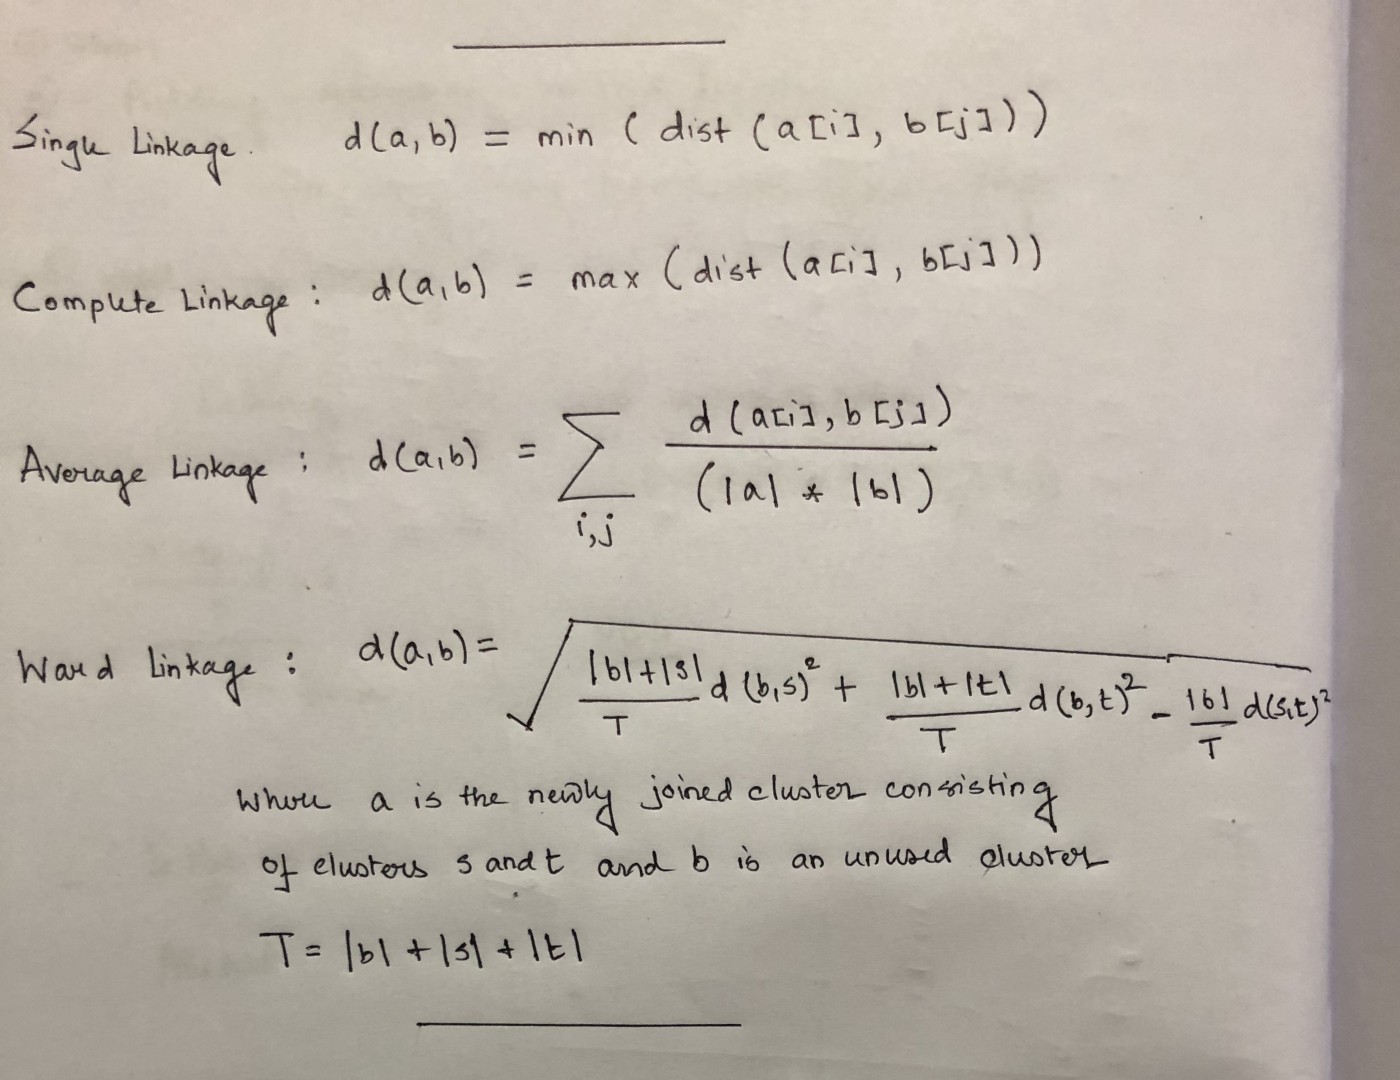 Single Linkage. d(a,b) = min ( dist (a[i], b[j]))
Compute Linkage : d(a,b) = max (dist (a[i], b[j]))
Average Linkage : d(a,b) = ∑_{i,j} d(a[i], b[j]) / (|a| * |b|)
Ward Linkage : d(a,b) = √( |b|+|s| / T d(b,s)² + |b|+|t| / T d(b,t)² - |b| / T d(s,t)² )
Where a is the newly joined cluster consisting
of clusters s and t and b is an unused cluster
T = |b| + |s| + |t|